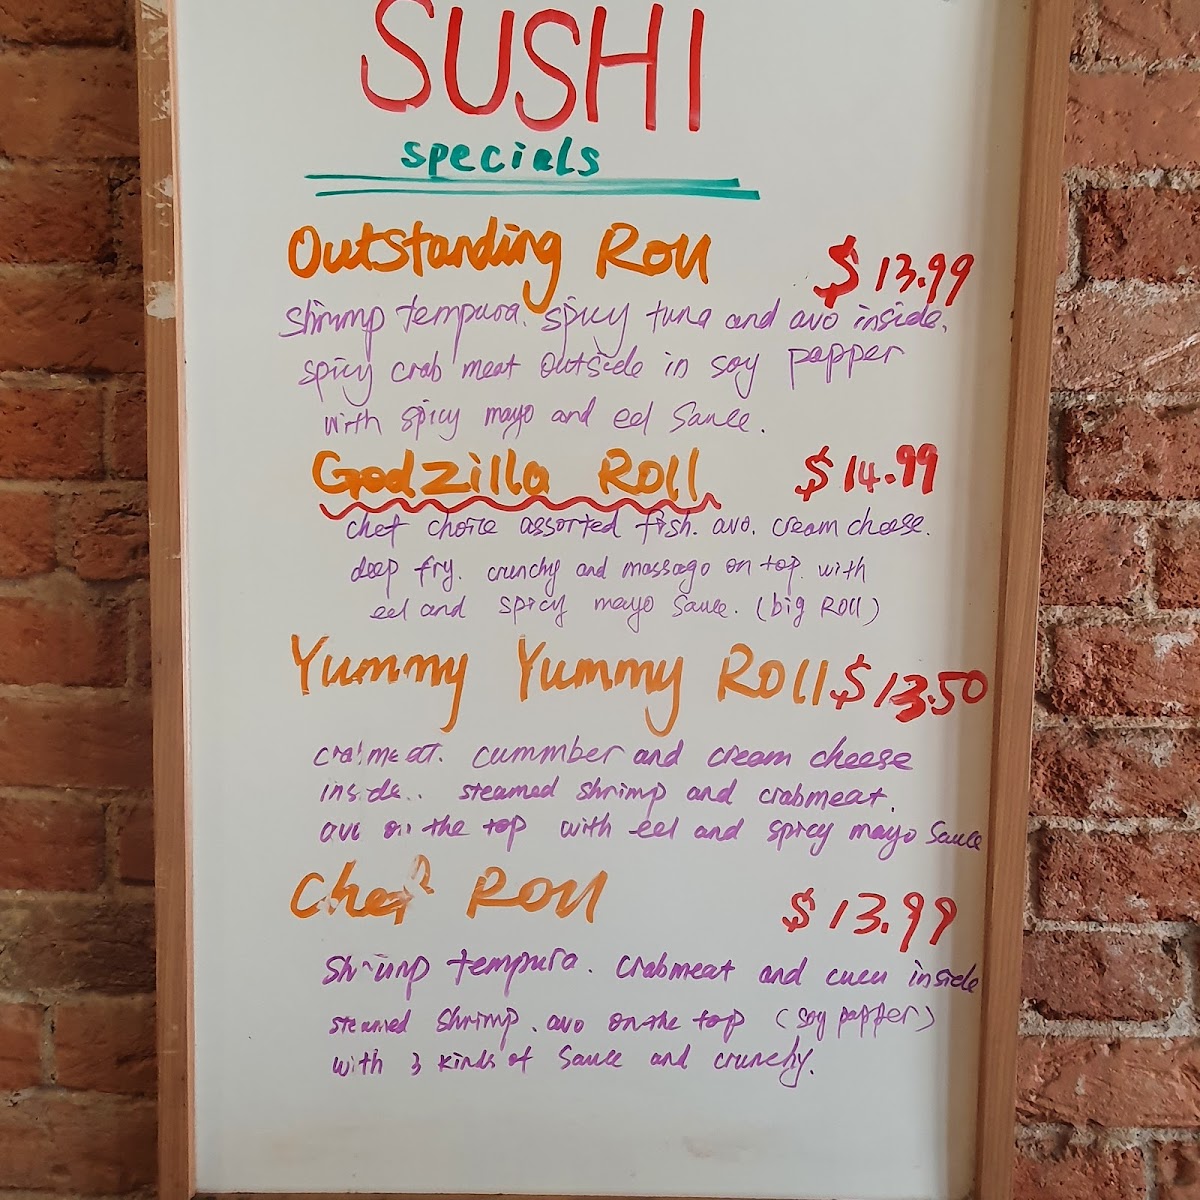 SUSHI
specials
Outstanding Roll $13.99
shrimp tempura. spicy tuna and avo inside.
spicy crab meat outside in soy papper
with spicy mayo and eel sauce.
Godzilla Roll $14.99
chef choice assorted fish. avo. cream cheese.
deep fry. crunchy and massago on top. with
eel and spicy mayo sauce. (big Roll)
Yummy Yummy Roll $13.50
crabmeat. cummber and cream cheese
inside.. steamed shrimp and crabmeat.
avo on the top with eel and spicy mayo sauce
Chef Roll $13.99
shrimp tempura. crabmeat and cucu inside
steamed shrimp. avo on the top (soy papper)
with 3 kinds of sauce and crunchy.